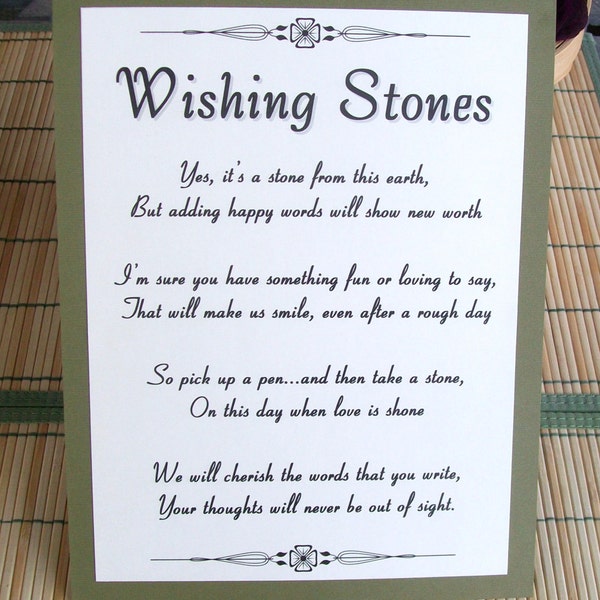 Wishing Stones
Yes, it's a stone from this earth,
But adding happy words will show new worth
I'm sure you have something fun or loving to say,
That will make us smile, even after a rough day
So pick up a pen...and then take a stone,
On this day when love is shone
We will cherish the words that you write,
Your thoughts will never be out of sight.